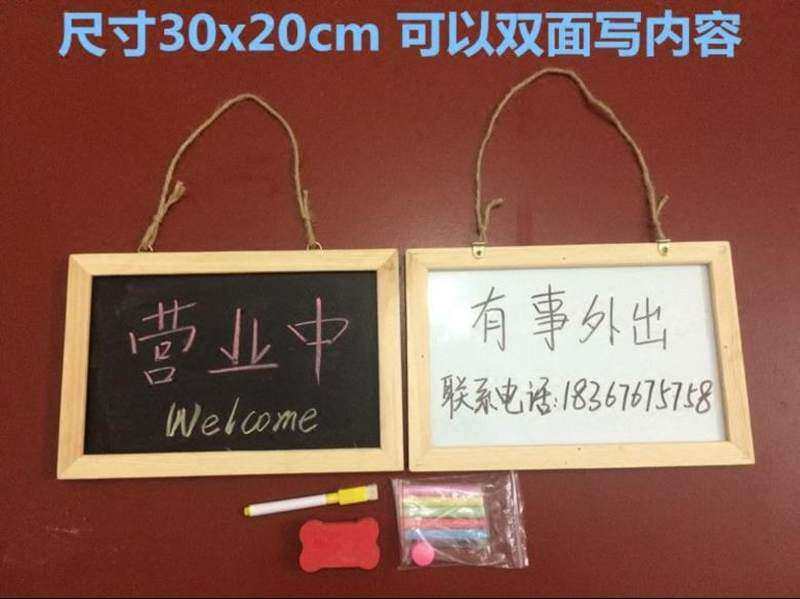 尺寸30x20cm 可以双面写内容
营业中
Welcome
有事外出
联系电话:18367675758